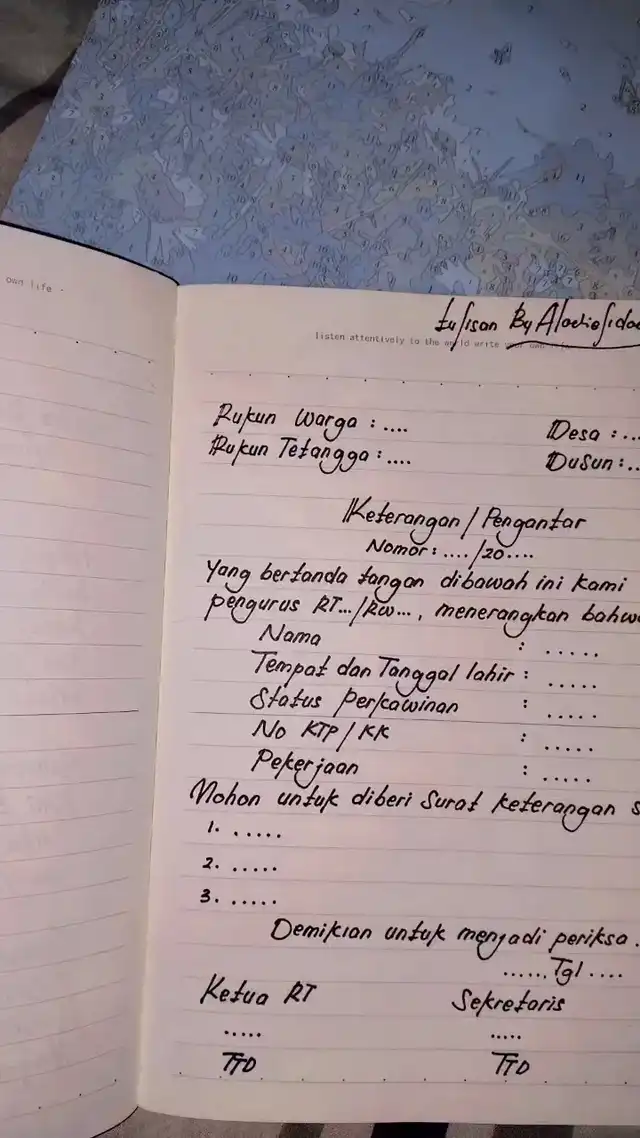 own life .
tulisan By
listen attentively to the world write your own life
Rukun Warga : .... Desa : ...
Rukun Tetangga : .... Dusun : ..
Keterangan / Pengantar
Nomor : .... /20....
Yang bertanda tangan dibawah ini kami
pengurus RT... /RW... , menerangkan bahwa
Nama : .....
Tempat dan Tanggal lahir : .....
Status perkawinan : .....
No KTP / KK : .....
Pekerjaan : .....
Mohon untuk diberi surat keterangan s
1. .....
2. .....
3. .....
Demikian untuk menjadi periksa .
...... Tgl ....
Ketua RT Sekretaris
..... .....
TTD TTD